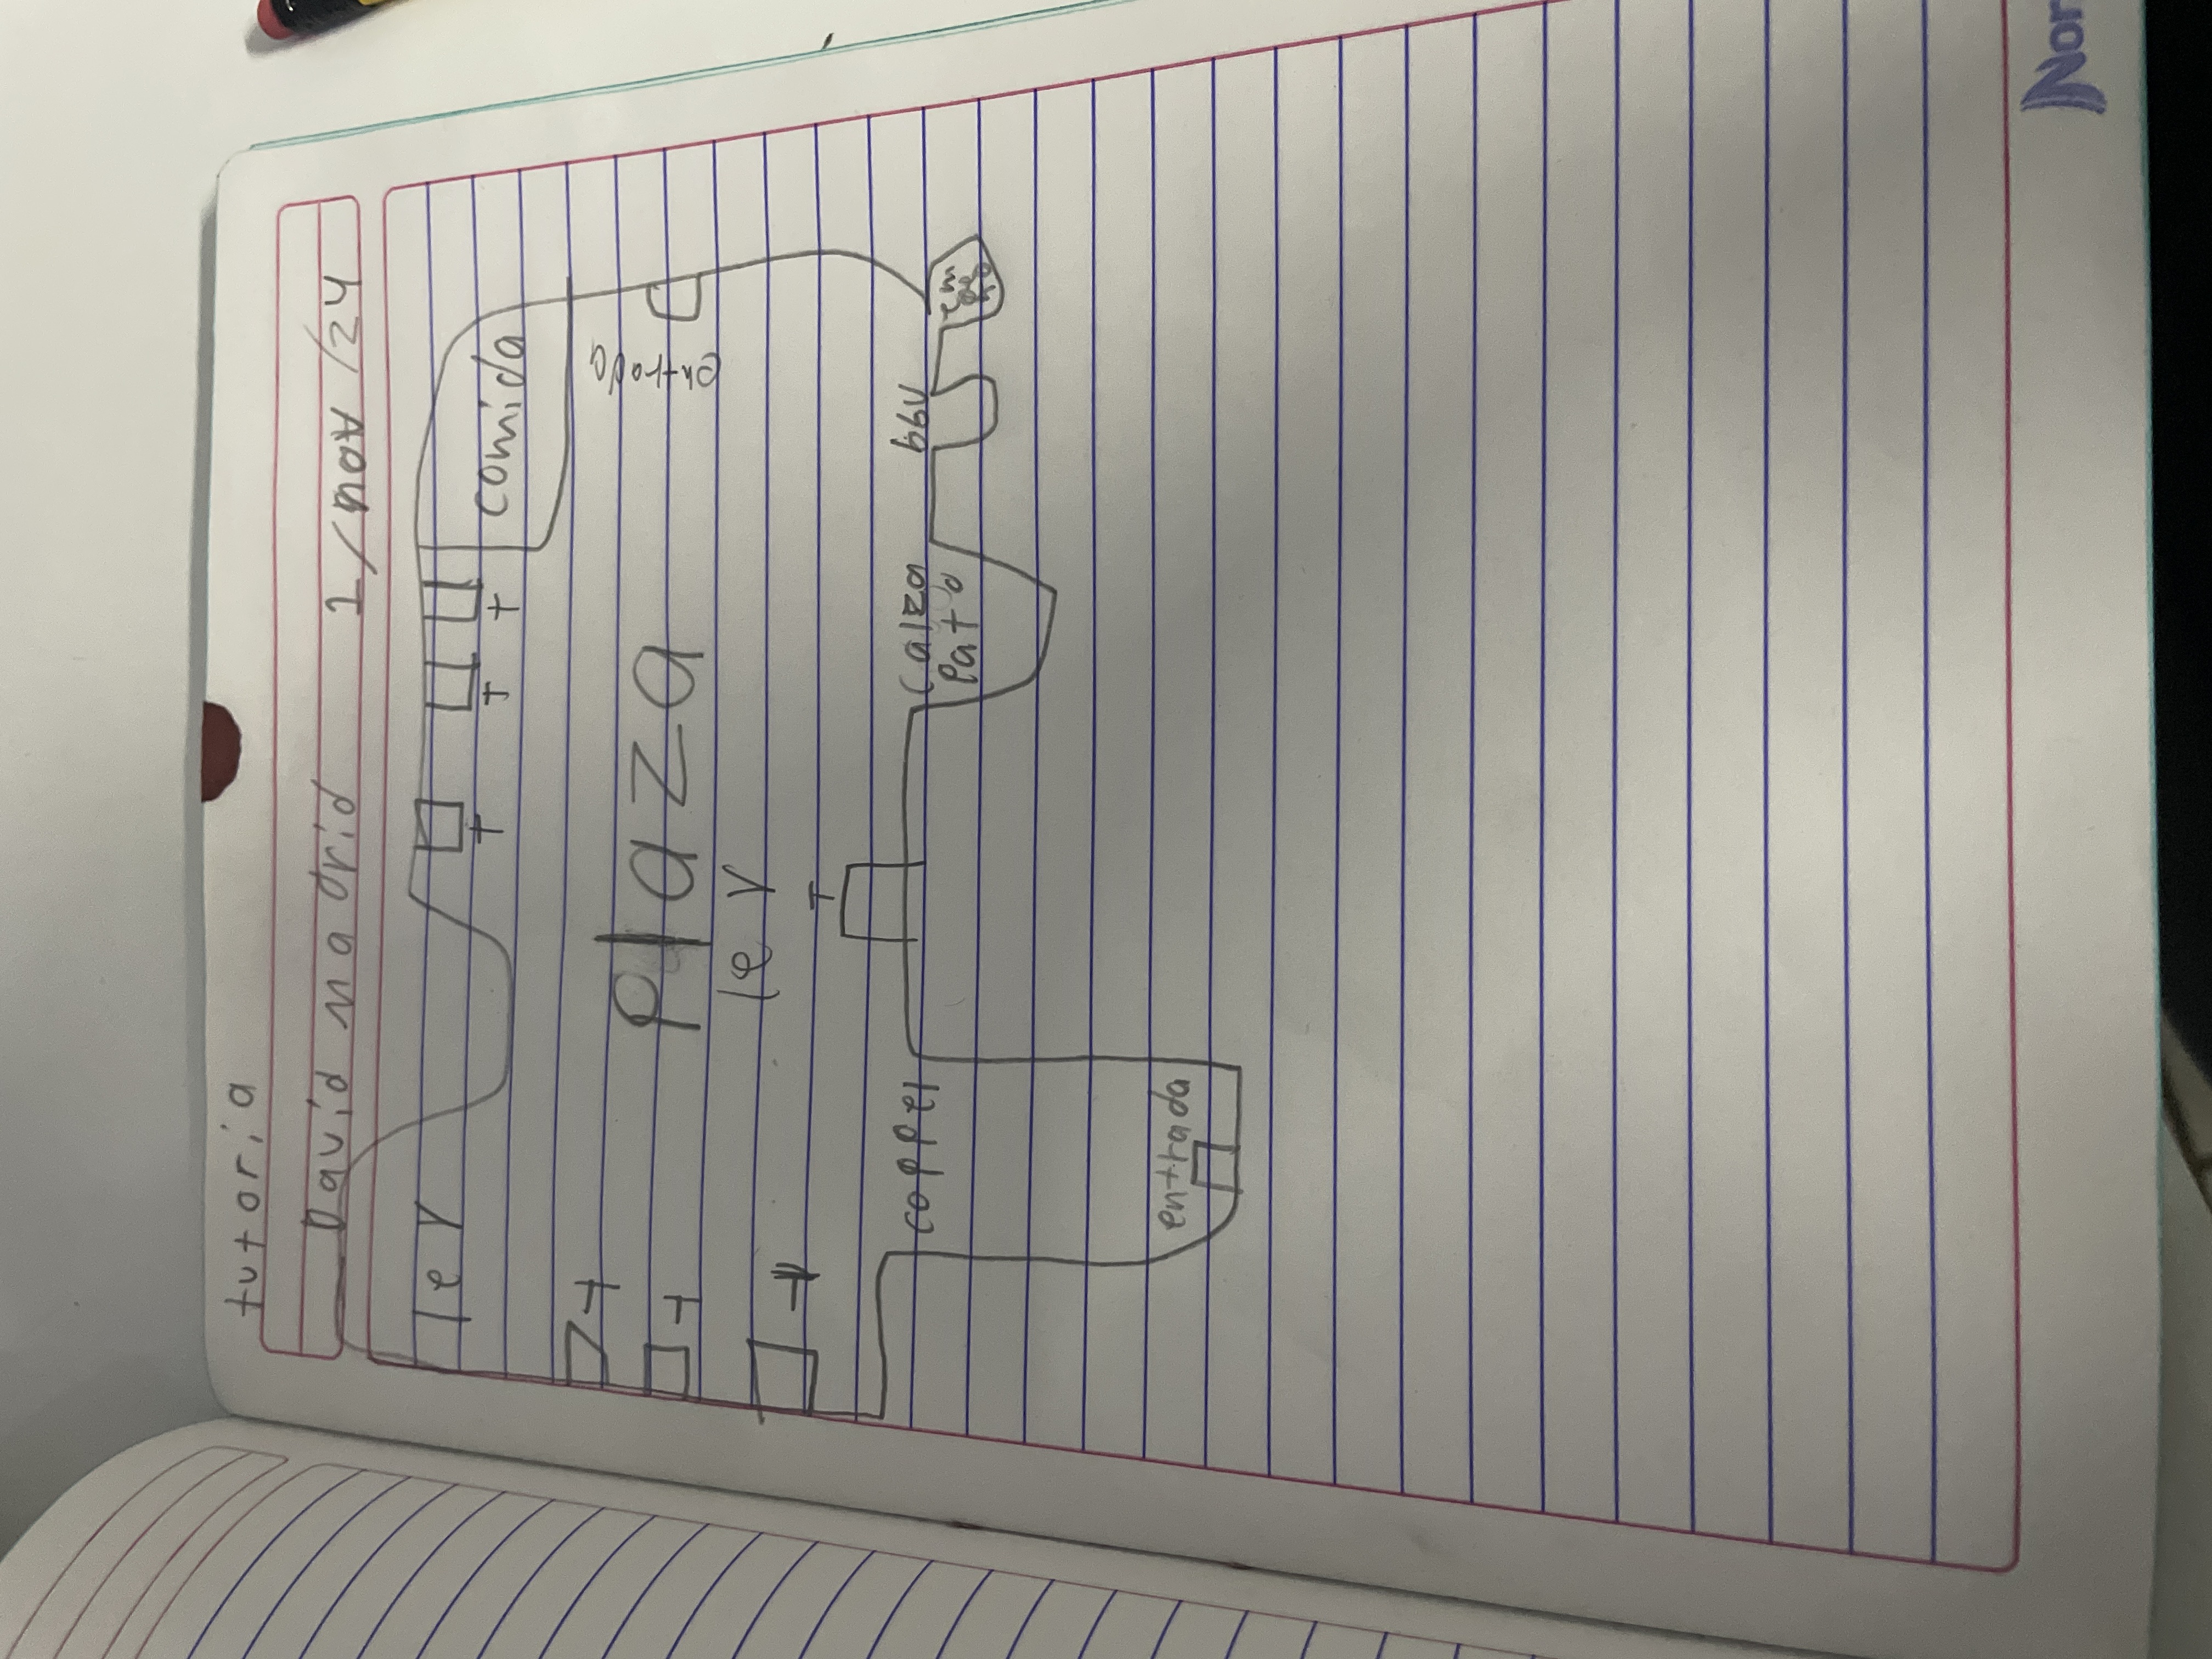 tutoria
David madrid 1/nov/24
ley
comida
T
T
T
entrada
T
T
T
plaza
ley
T
coppel
calza
pato
entrada
Nor